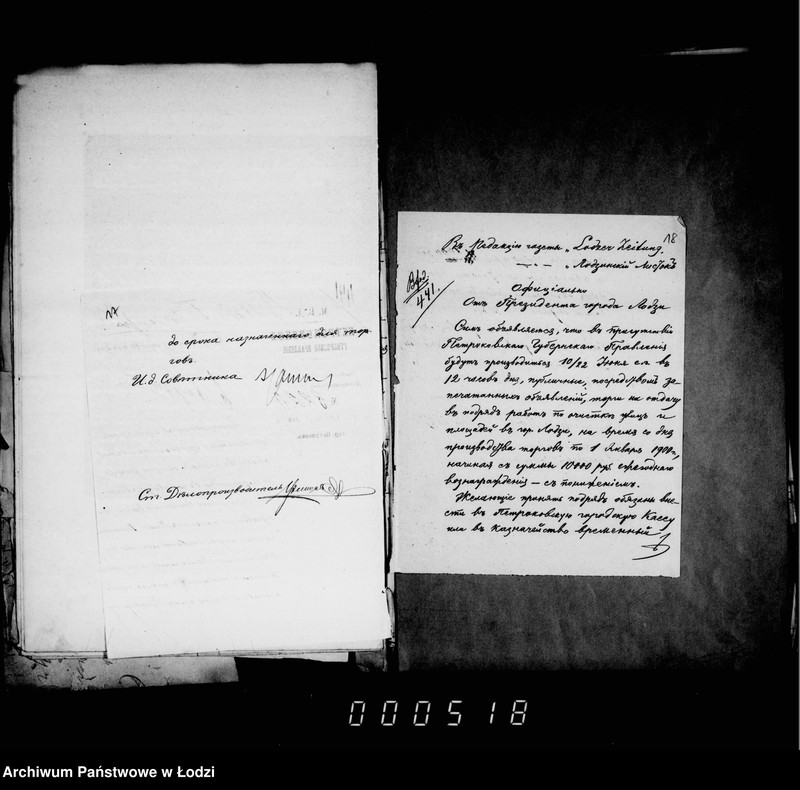 до срока назначеннаго для тор-
говъ
И.д. Совѣтника
Ст. Дѣлопроизводитель
18
Въ Редакцію газеты „Lodzer Zeitung"
— „ — „Лодзинскій Листокъ"
441.
Офиціально
Отъ Президента города Лодзи
Симъ объявляется, что въ присутствіи
Петроковскаго Губернскаго Правленія
будутъ производиться 10/22 Іюня с.г. въ
12 часовъ дня, публичные, посредствомъ за-
печатанныхъ объявленій, торги на отдачу
въ подрядъ работъ по очисткѣ улицъ и
площадей въ гор. Лодзи, на время со дня
производства торговъ по 1 Января 1900 г.,
начиная съ суммы 10000 руб. ежегоднаго
вознагражденія — съ пониженіемъ.
Желающіе принять подрядъ обязаны вне-
сти въ Петроковскую городскую Кассу
или въ казначейство временный
000518
Archiwum Państwowe w Łodzi